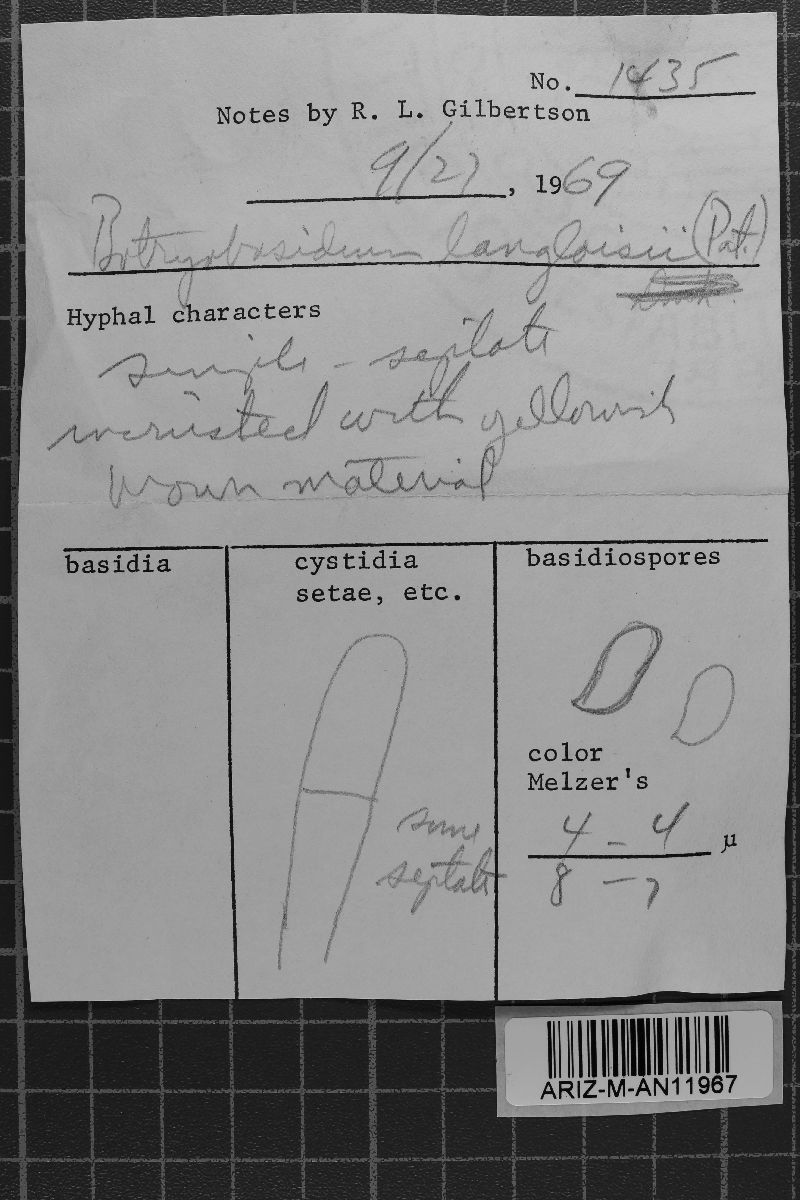 No. 1435
Notes by R. L. Gilbertson
9/27, 1969
Botryobasidium langloisii (Pat.)
Hyphal characters
simple - septate
incrusted with yellowish
brown material
basidia
cystidia
setae, etc.
some
septate
basidiospores
color
Melzer's
4 - 4 µ
8 - 7
ARIZ-M-AN11967